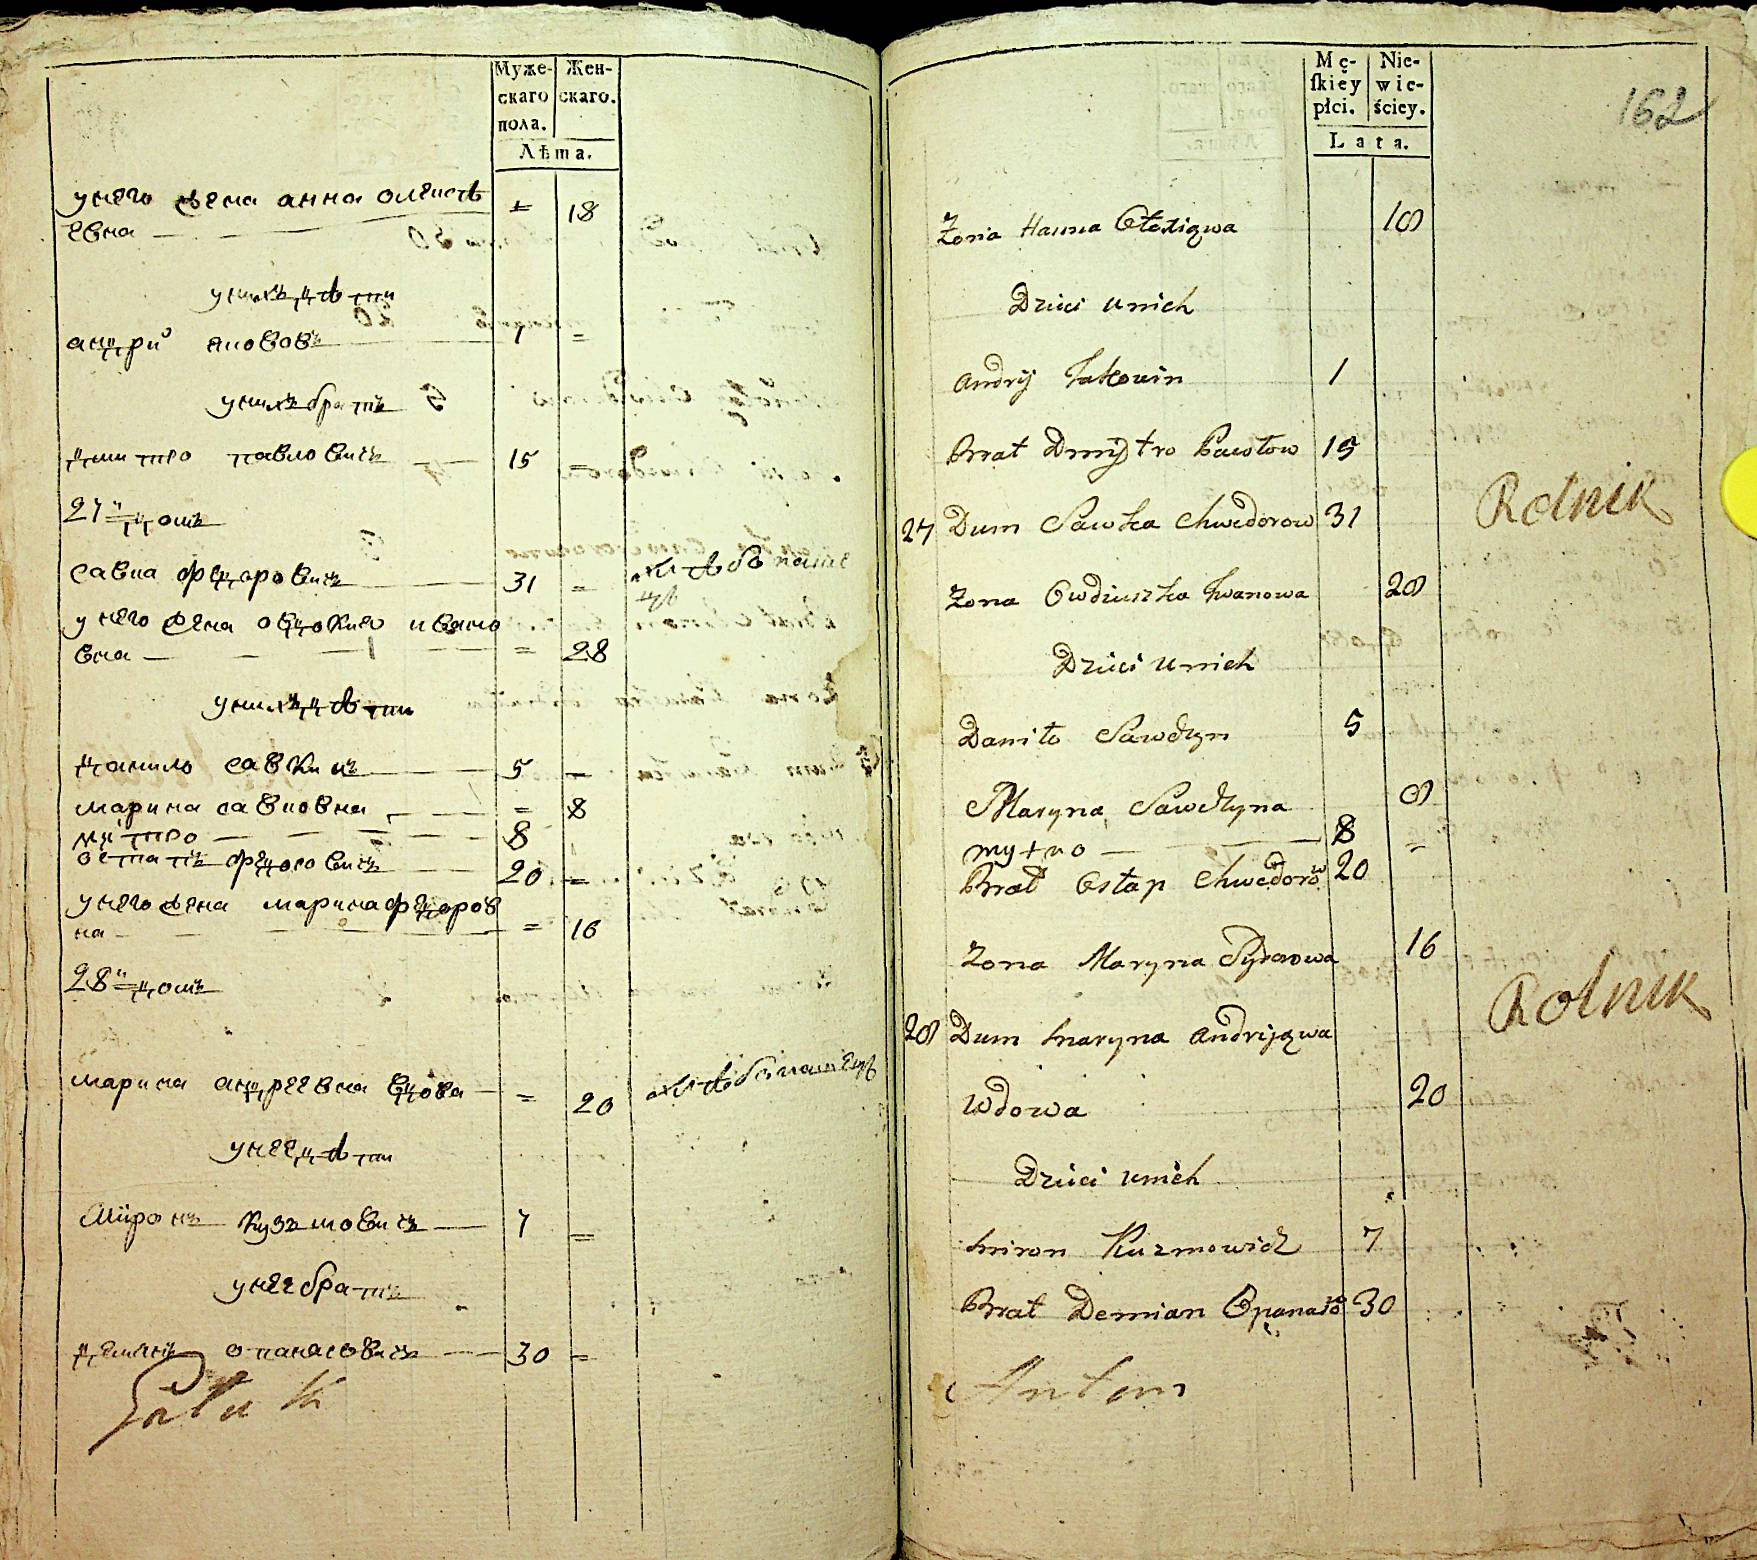 Муже-
скаго
пола.
Жен-
скаго.
Лѣта.
унего жена анна олексѣ
евна — 18
унихъ дѣти
андрий якововъ 1 =
унихъ братъ
дмитро павловичъ — 15
27 домъ
савка федоровичъ 31 =
унего жена овдокия ивано
вна — = 28
унихъ дѣти
данило савкинъ 5 —
марина савковна — = 8
митро — 8
остапъ федоровичъ 20 =
унего жена марина федоров
на — = 16
28 домъ
марина андреевна вдова — = 20
унее дѣти
миронъ кузьмовичъ — 7 =
унее братъ
демянъ опанасовичъ — 30 =
162
Mę-
ſkiey
płci.
Nie-
wie-
ściey.
Lata.
Żona Hanna 18
Dzieci u nich
Andrij Jakowin 1
Brat Dmytro Pawłow 15
27 Dum Sawka Chwedorow 31 Rolnik
Żona Owdiuszka Iwanowa 28
Dzieci u nich
Daniło Sawczyn 5
Maryna Sawczyna 8
mytro — 8 =
Brat Ostap Chwedorow 20
Żona Maryna 16
28 Dum Maryna Andrijowa Rolnik
Wdowa 20
Dzieci u nich
Miron Kuzmowicz 7
Brat Demian Opanasow 30
Anton